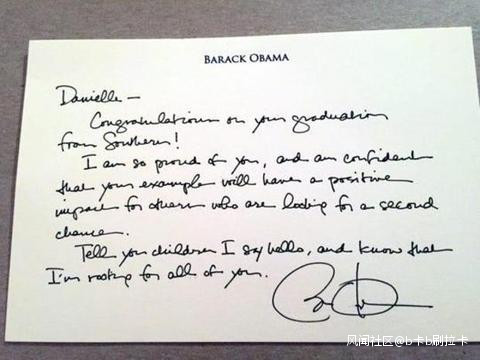 BARACK OBAMA
Danielle —
Congratulations on your graduation
from Southern!
I am so proud of you, and am confident
that your example will have a positive
impact for others who are looking for a second
chance.
Tell your children I say hello, and know that
I'm rooting for all of you.
风闻社区@b卡b刷拉卡